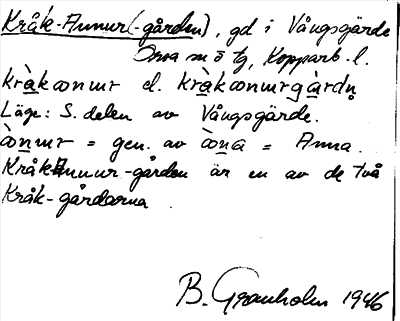 Kråk-Annur(-gården), gd i Vångsgärde
Orsa sn ö tg, Kopparb. l.
kràkonnur el. kràkonnurgàrdṇ
Läge: S. delen av Vångsgärde.
ònnur = gen. av òna = Anna.
KråkAnnur-gården är en av de två
Kråk-gårdarna
B. Granholm 1946